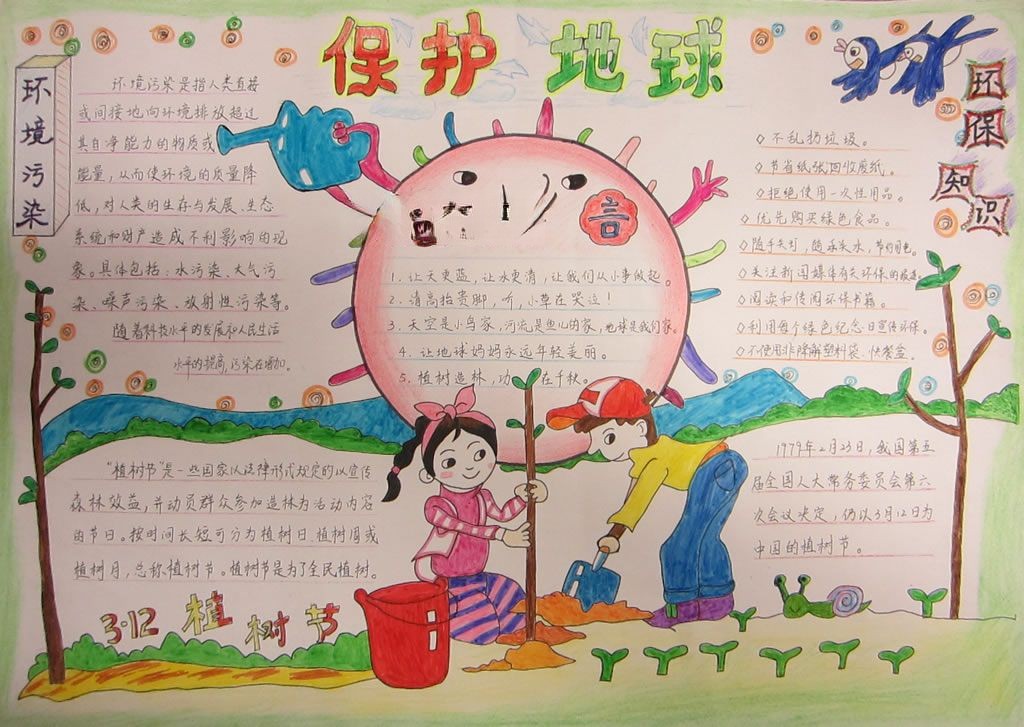 保护地球
环境污染
环境污染是指人类直接
或间接地向环境排放超过
其自净能力的物质或
能量，从而使环境的质量降
低，对人类的生存与发展、生态
系统和财产造成不利影响的现
象。具体包括：水污染、大气污
染、噪声污染、放射性污染等。
随着科技水平的发展和人民生活
水平的提高，污染在增加。
言
1. 让天更蓝，让水更清，让我们从小事做起。
2. 请高抬贵脚，听，小草在哭泣！
3. 天空是小鸟家，河流是鱼儿的家，地球是我们家。
4. 让地球妈妈永远年轻美丽。
5. 植树造林，功在千秋。
环保知识
◇不乱扔垃圾。
◇节省纸张回收废纸。
◇拒绝使用一次性用品。
◇优先购买绿色食品。
◇随手关灯，随手关水，节约用电。
◇关注新闻媒体有关环保的报道。
◇阅读和传阅环保书籍。
◇利用每个绿色纪念日宣传环保。
◇不使用非降解塑料袋、快餐盒。
“植树节”是一些国家以法律形式规定的以宣传
森林效益，并动员群众参加造林为活动内容
的节日。按时间长短可分为植树日、植树周或
植树月，总称植树节。植树节是为了全民植树。
3·12 植树节
1979年2月23日，我国第五
届全国人大常务委员会第六
次会议决定，仍以3月12日为
中国的植树节。